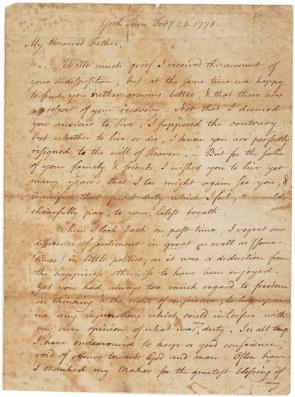 York Town Feb.y 23. 1778.
My Honoured Father,
With much grief I received the account of
your indisposition, but at the same time was happy
to find you rather growing better, & that there was
a prospect of your recovery. Not that I deemed
you anxious to live, I supposed the contrary
but whether to live or die, I knew you are perfectly
resigned to the will of Heaven. – But for the sake
of your family & friends, I wished you to live yet
many years that I too might again see you, &
manifest that filial duty which I feel, & would
chearfully pay, to your latest breath
When I look back on past time, I regret our
difference of sentiment in great as well as (some-
times) in little politics; as it was a deduction from
the happiness otherwise to have been enjoyed.
Yet you had always too much regard to freedom
in thinking & the rights of conscience, to lay upon
me any injunctions which could interfere with
my own opinion of what was my duty. In all things
I have endeavoured to keep a good conscience,
void of offence towards God and man. Often have
I thanked my Maker for the greatest blessing of
my